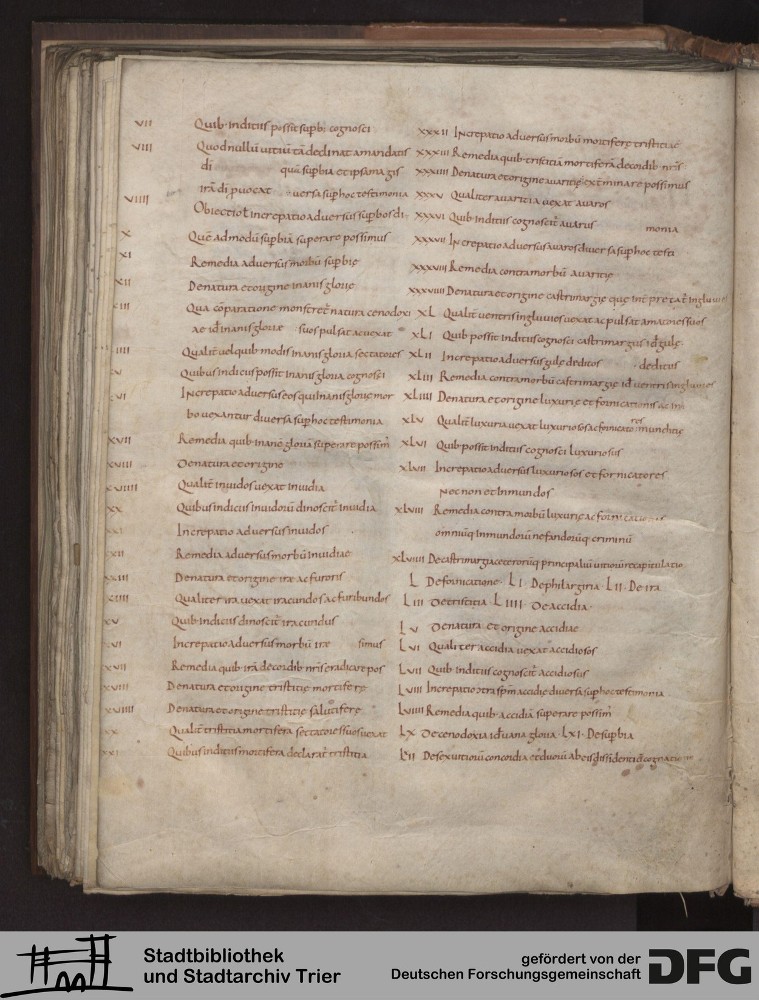 VII Quib· inditiis possit supb; cognosci
VIII Quod nullū uitiū tā declinat amandatis
di quā supbia et ipsa magis
irā di puocat uersa sup hoc testimonia
VIIII Obiectio ł increpatio aduersus supbos di
X Quē admodū supbiā superare possimus
XI Remedia aduersus morbū supbię
XII De natura et origine inanis glorię
XIII Qua cōparatione monstret natura cenodoxi
ae id inanis gloriae suos pulsat ac uexat
IIII Qualit uel quib modis inanis gloria sectatores
V Quibus indicus possit inanis gloria cognosci
VI Increpatio aduersus eos qui inanis glorię mor
bo uexantur diuersa sup hoc testimonia
XVII Remedia quib inanē gloriā superare possim
XVIII De natura et origine
XVIIII Qualit inuidos uexat inuidia
XX Quibus indicus inuidorū dinoscit inuidia
XXI Increpatio aduersus inuidos
XXII Remedia aduersus morbū inuidiae
XXIII De natura et origine irae ac furoris
XXIIII Qualiter ira uexat iracundos ac furibundos
XV Quib indicus dinoscit iracundus
XVI Increpatio aduersus morbū irae simus
XXVII Remedia quib irā de cordib nris eradicare pos
XXVIII De natura et origine tristitię mortiferę
XXVIIII De natura et origine tristitię salutiferę
XXX Qualit tristitia mortifera sectatores suos uexat
XXXI Quibus inditiis mortifera declarat tristitia
XXXII Increpatio aduersus morbū mortiferę tristitiae
XXXIII Remedia quib tristitiā mortiferā de cordib nris
XXXIIII De natura et origine auaritię extminare possimus
XXXV Qualiter auaritia uexat auaros
XXXVI Quib inditiis cognoscit auarus monia
XXXVII Increpatio aduersus auaros diuersa sup hoc testi
XXXVIII Remedia contra morbū auaritię
XXXVIIII De natura et origine castrimargię quę intpretat ingluuies
XL Qualit uentris ingluuies uexat ac pulsat amatores suos
XLI Quib possit inditiis cognosci castrimargus id gulę
XLII Increpatio aduersus gulę deditos deditus
XLIII Remedia contra morbū castrimargię id uentris ingluuies
XLIIII De natura et origine luxurię et fornicationis ac in
XLV Qualit luxuria uexat luxuriosos ac fornicatores munditię
XLVI Quib possit inditiis cognosci luxuriosus
XLVII Increpatio aduersus luxuriosos et fornicatores
nec non et inmundos
XLVIII Remedia contra morbū luxurię ac fornicationis
omniūq inmundorū nefandorūq criminū
XLVIIII De castrimargia ceterorūq principaliū uitiorū recapitulatio
L De fornicatione · LI · De philargiria · LII · De ira
LIII De tristitia · LIIII · De accidia ·
LV De natura et origine accidiae
LVI Qualiter accidia uexat accidiosos
LVII Quib inditiis cognoscit accidiosus
LVIII Increpatio ctra spm accidię diuersa sup hoc testimonia
LVIIII Remedia quib accidiā superare possim
LX De cenodoxia id uana gloria · LXI · De supbia
LXII De sex uitiorū concordia et duorū ab eis dissidentiū cognatione
Stadtbibliothek
und Stadtarchiv Trier
gefördert von der
Deutschen Forschungsgemeinschaft
DFG